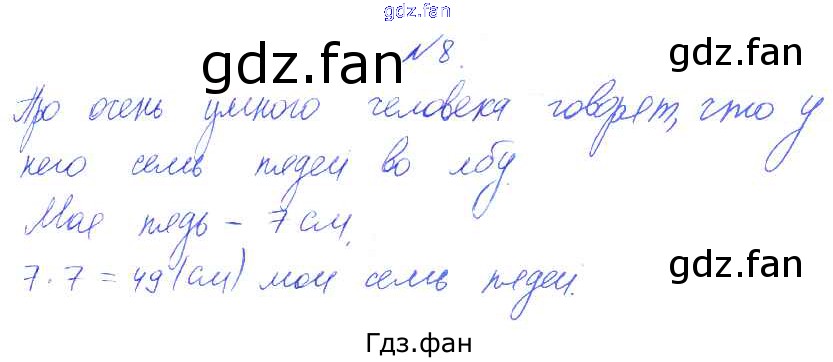 gdz.fan
gdz.fan №8. gdz.fan
Про очень умного человека говорят, что у
него семь пядей во лбу.
Моя пядь – 7 см.
7·7 = 49 (см) мои семь пядей.
gdz.fan
Гдз.фан